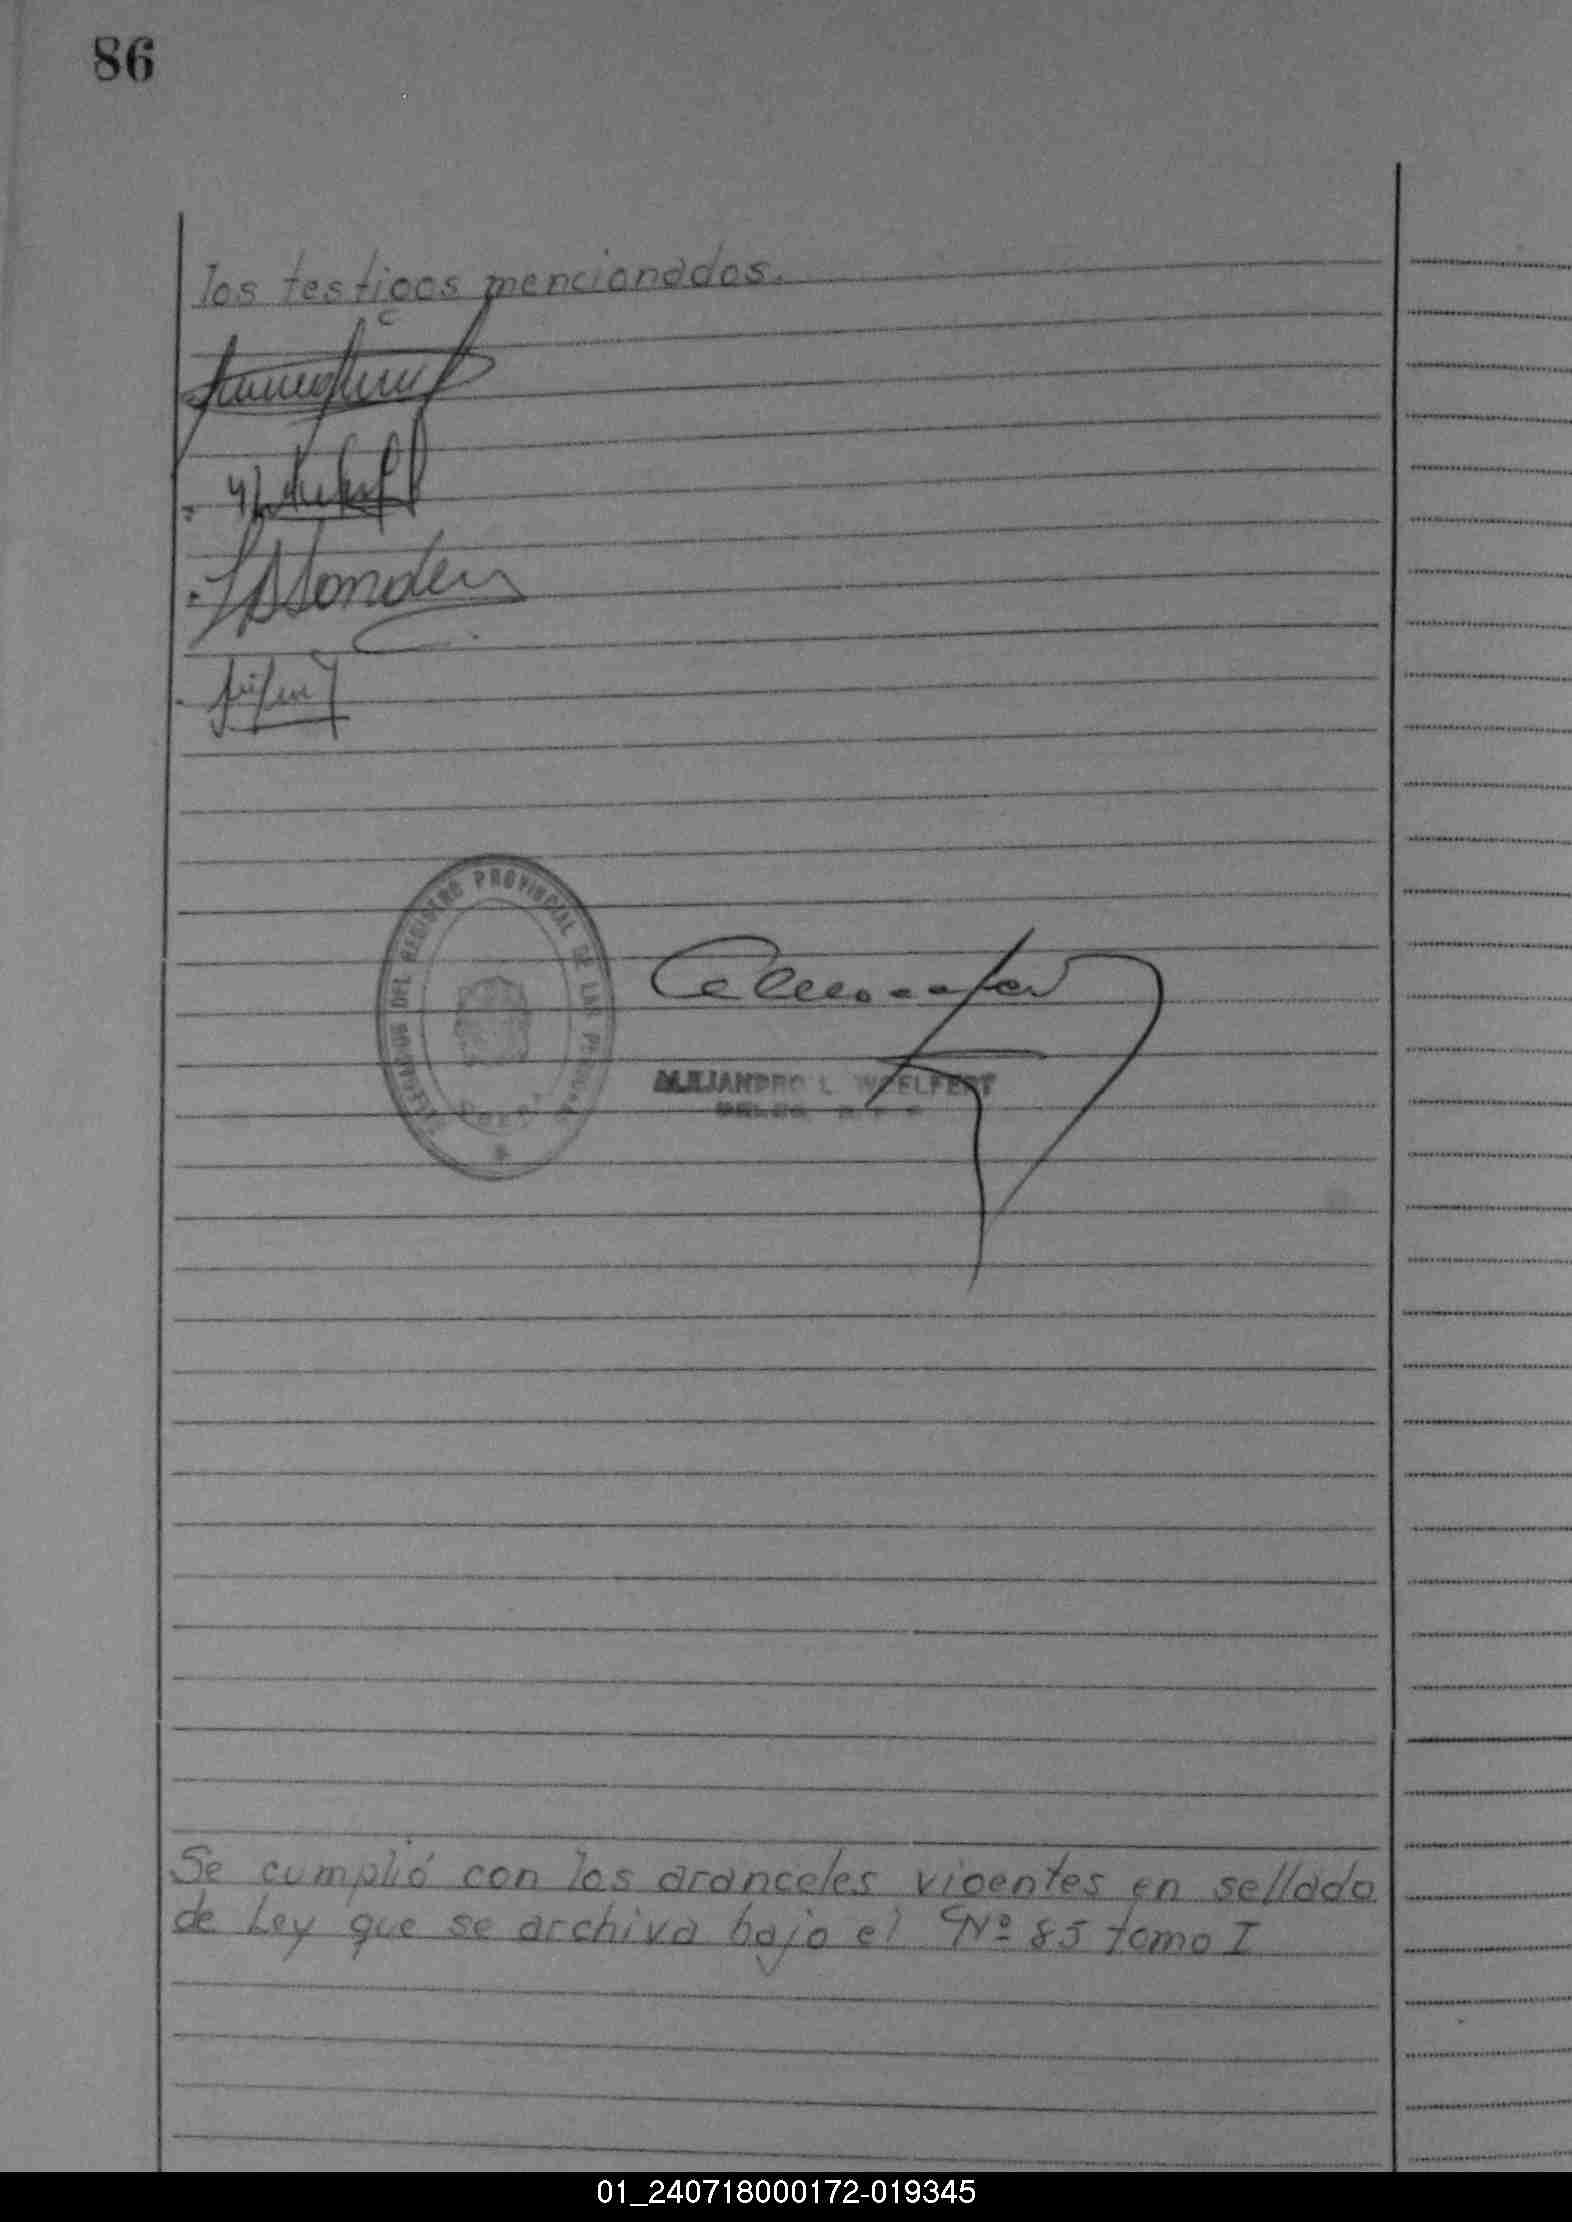 86
los testigos mencionados.
DEL REGISTRO PROVINCIAL DE LAS PERSONAS
ALEJANDRO L. WOELFERT
Se cumplió con los aranceles vigentes en sellado
de Ley que se archiva bajo el Nº 85 tomo I
01_240718000172-019345